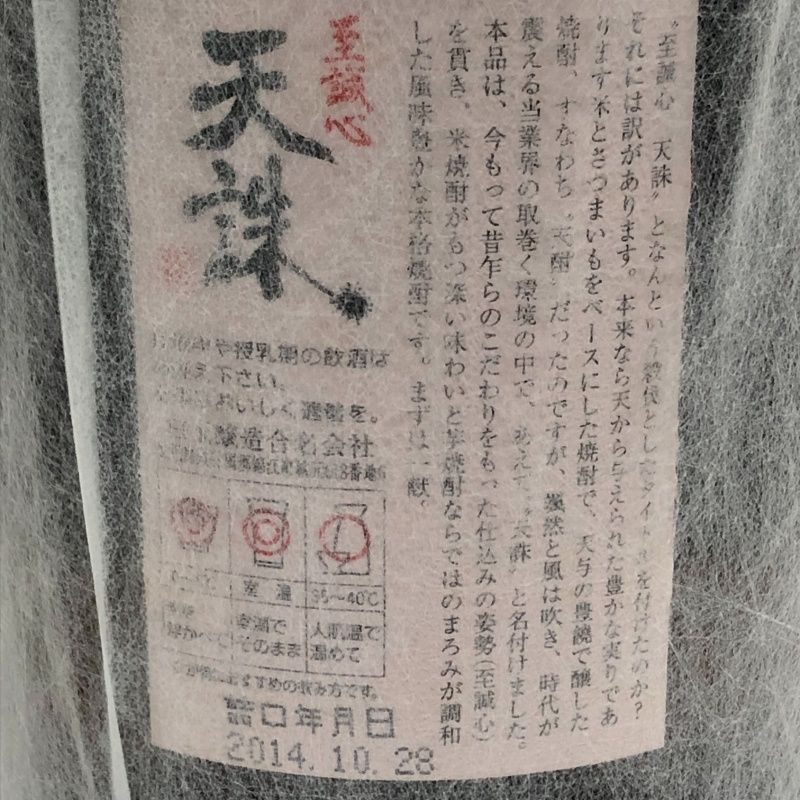 〝至誠心 天誅〟となんという殺伐としたタイトルを付けたのか？
それには訳があります。本来なら天から与えられた豊かな実りであ
ります米とさつまいもをベースにした焼酎で、天与の豊饒で醸した
焼酎、すなわち〝天酎〟だったのですが、颯然と風は吹き、時代が
震える当業界の取巻く環境の中で、あえて、〝天誅〟と名付けました。
本品は、今もって昔乍らのこだわりをもった仕込みの姿勢(至誠心)
を貫き、米焼酎がもつ深い味わいと芋焼酎ならではのまろみが調和
した風味豊かな本格焼酎です。まずは一献。
至誠心
天誅
や授乳期の飲酒は
下さい。
おいしく適量を。
醸造合名会社
室温
35〜40℃
浮かべて
室温で
そのまま
人肌温で
温めて
おすすめの飲み方です。
詰口年月日
2014.10.28